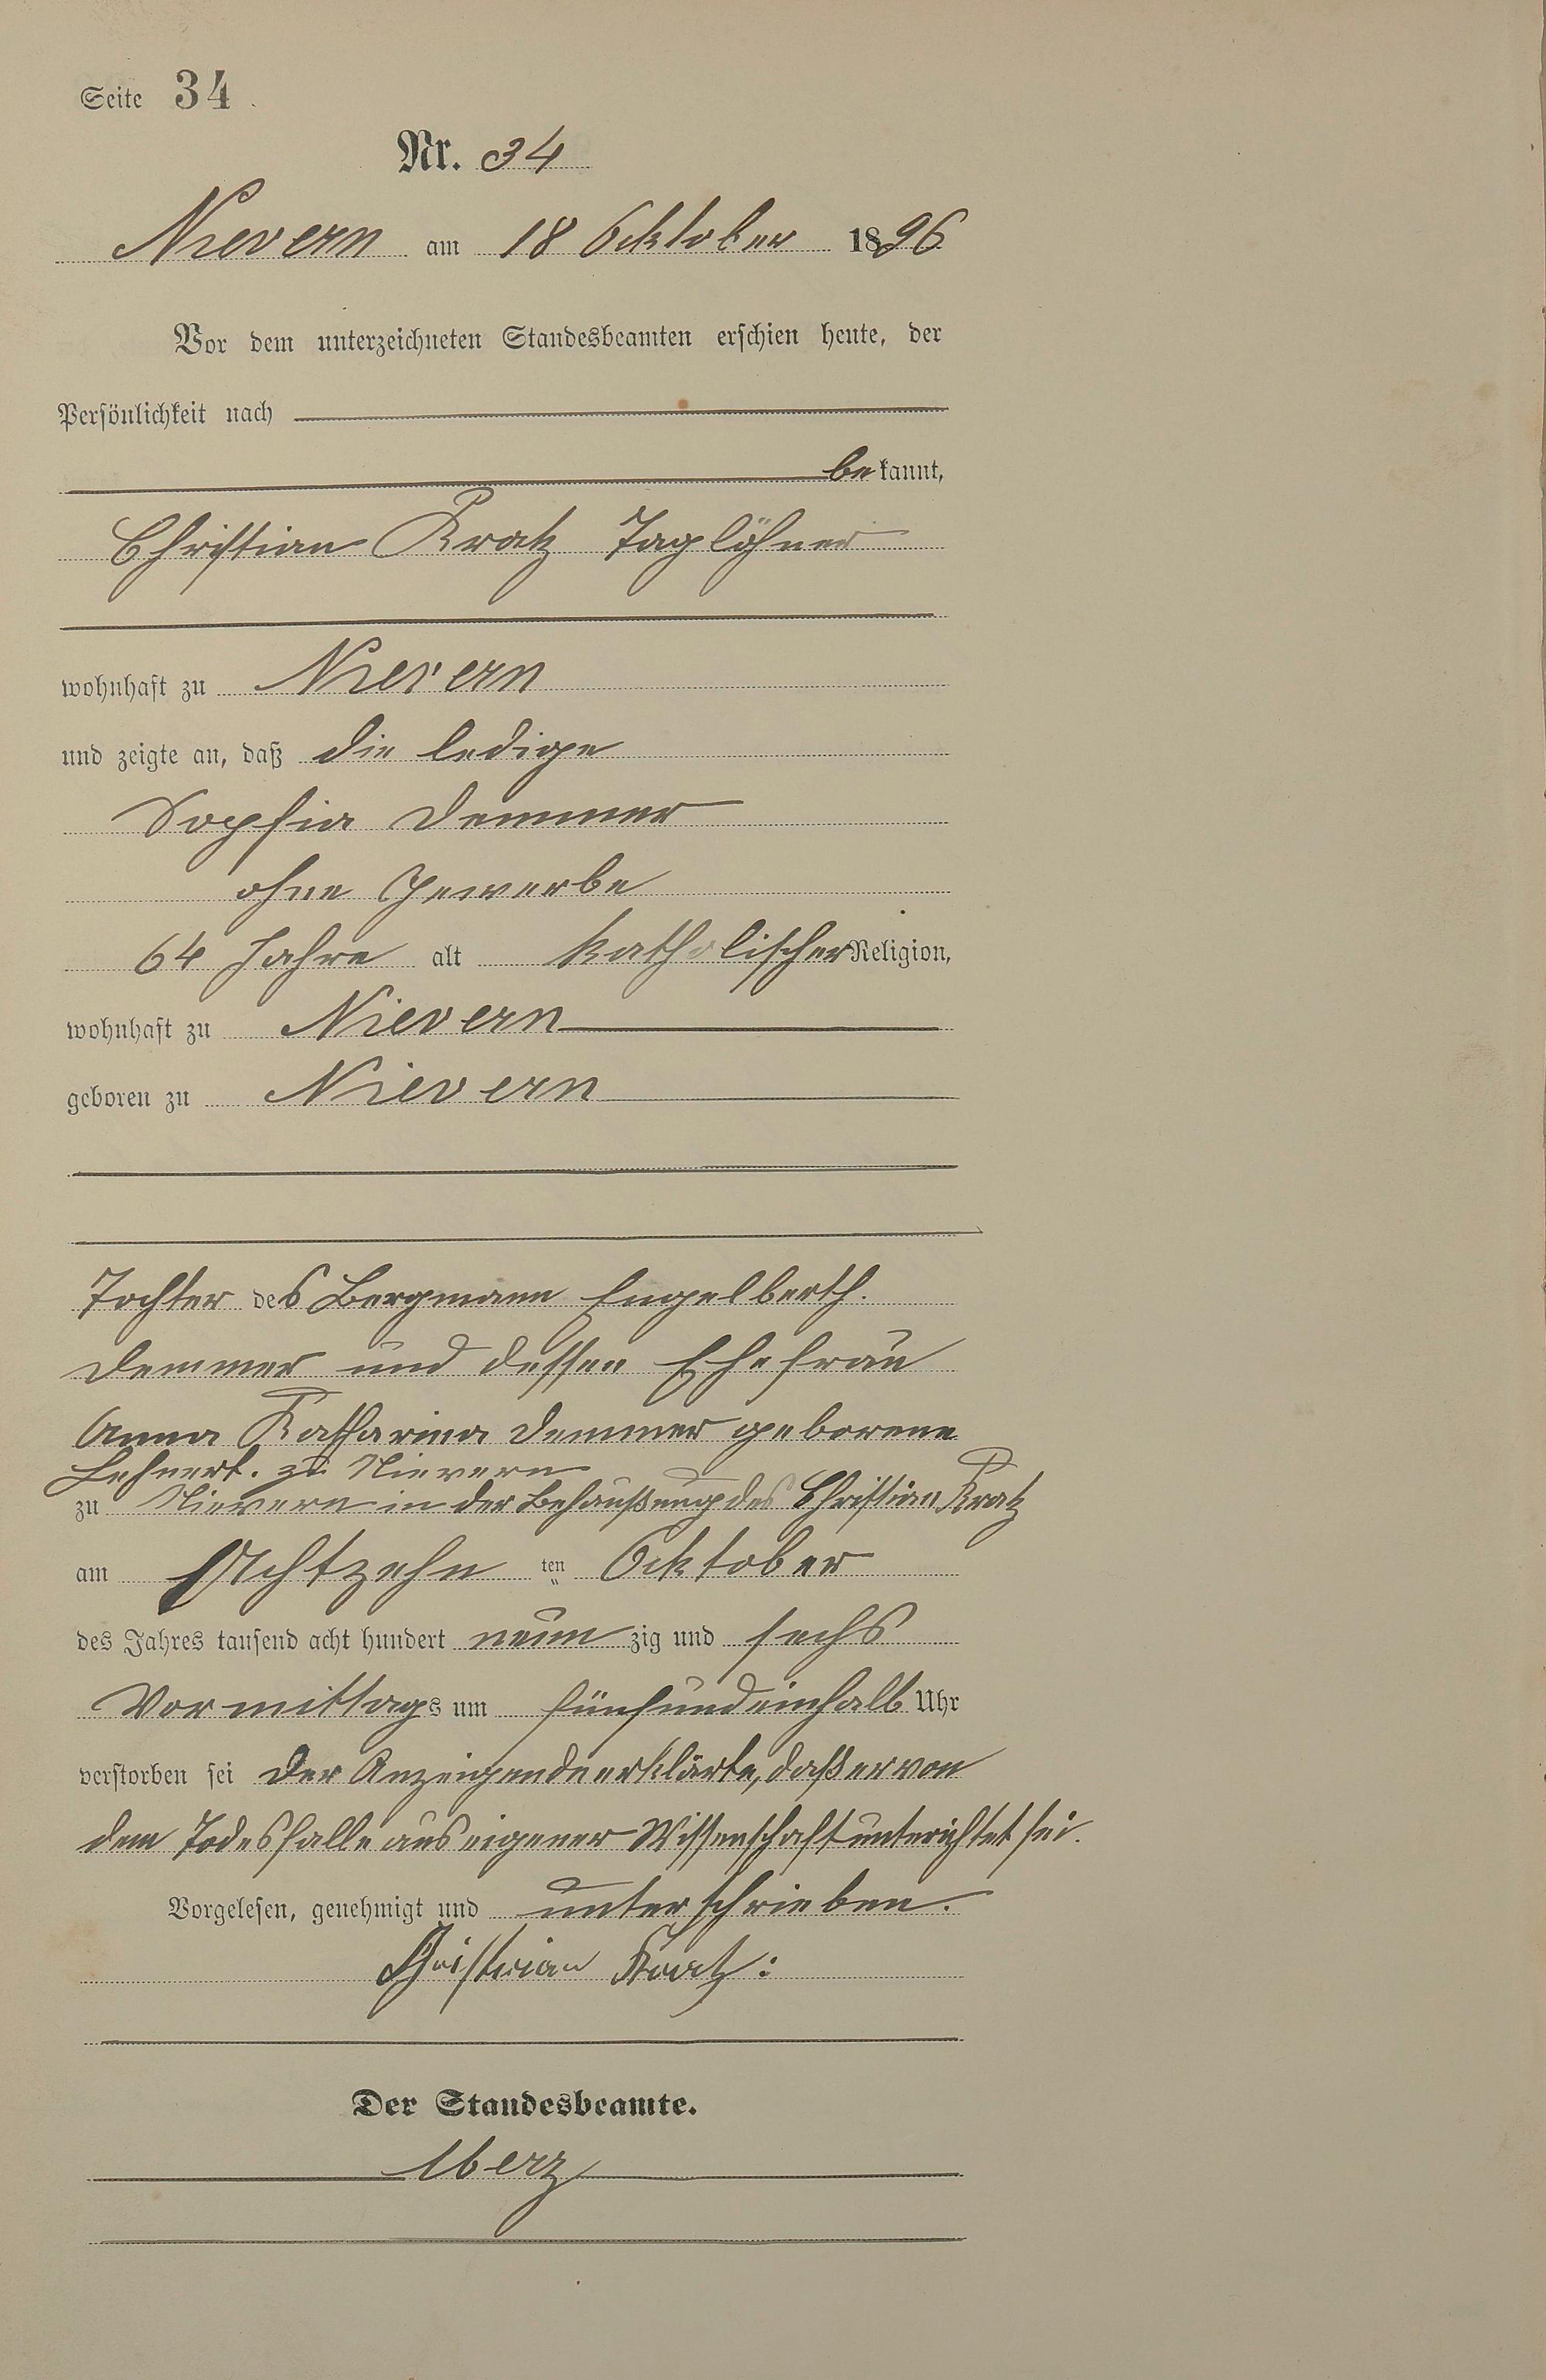 Seite 34
Nr. 34
Nievern am 18 Ocktober 1896
Vor dem unterzeichneten Standesbeamten erschien heute, der
Persönlichkeit nach
bekannt,
Christian Kratz Taglöhner
wohnhaft zu Nievern
und zeigte an, daß die ledige
Sophia Demmer
ohne Gewerbe
64 Jahre alt katholischer Religion,
wohnhaft zu Nievern
geboren zu Nievern
Tochter des Bergmann Engelberth.
Demmer und dessen Ehefrau
Anna Katharina Demmer geborene
Lehnert. zu Nievern
zu Nievern in der Behaußung des Christian Kratz
am Achtzehn ten Ocktober
des Jahres tausend acht hundert neun zig und sechs
Vormittags um fünfundeinhalb Uhr
verstorben sei Der Anzeigende erklärte, daß er von
dem Todesfalle aus eigener Wissenschaft unterichtet sei.
Vorgelesen, genehmigt und unterschrieben.
Christian Kratz:
Der Standesbeamte.